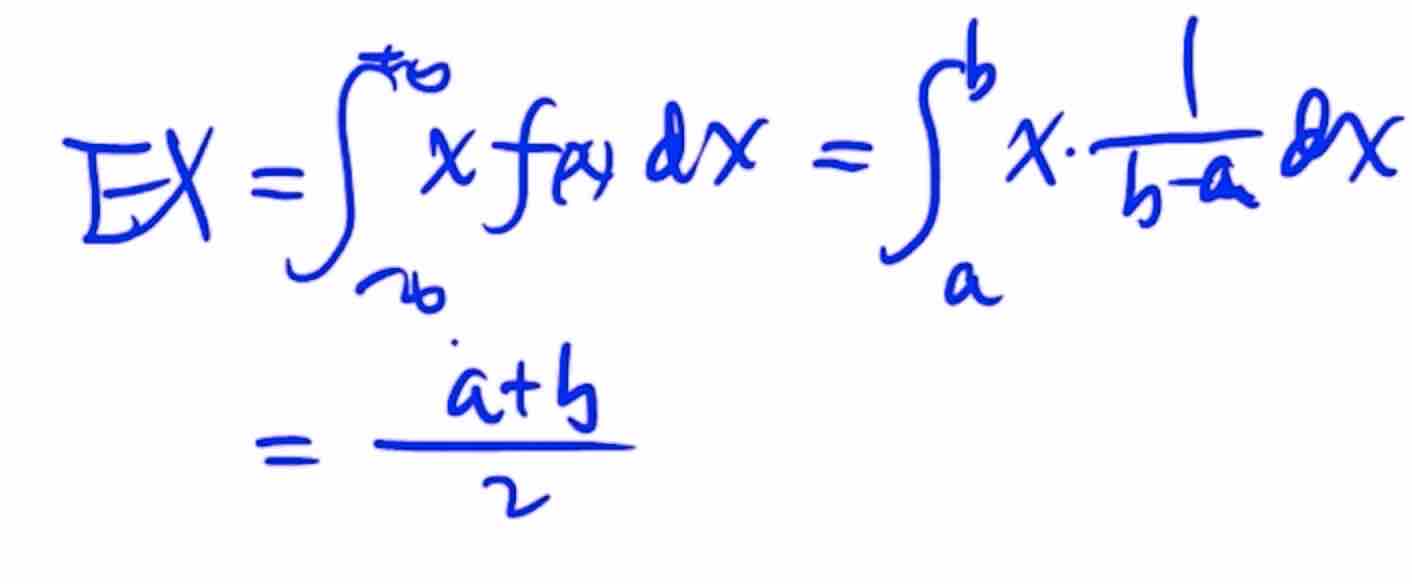 EX = ∫_{-∞}^{+∞} x f(x) dx = ∫_{a}^{b} x · \frac{1}{b-a} dx
= \frac{a+b}{2}